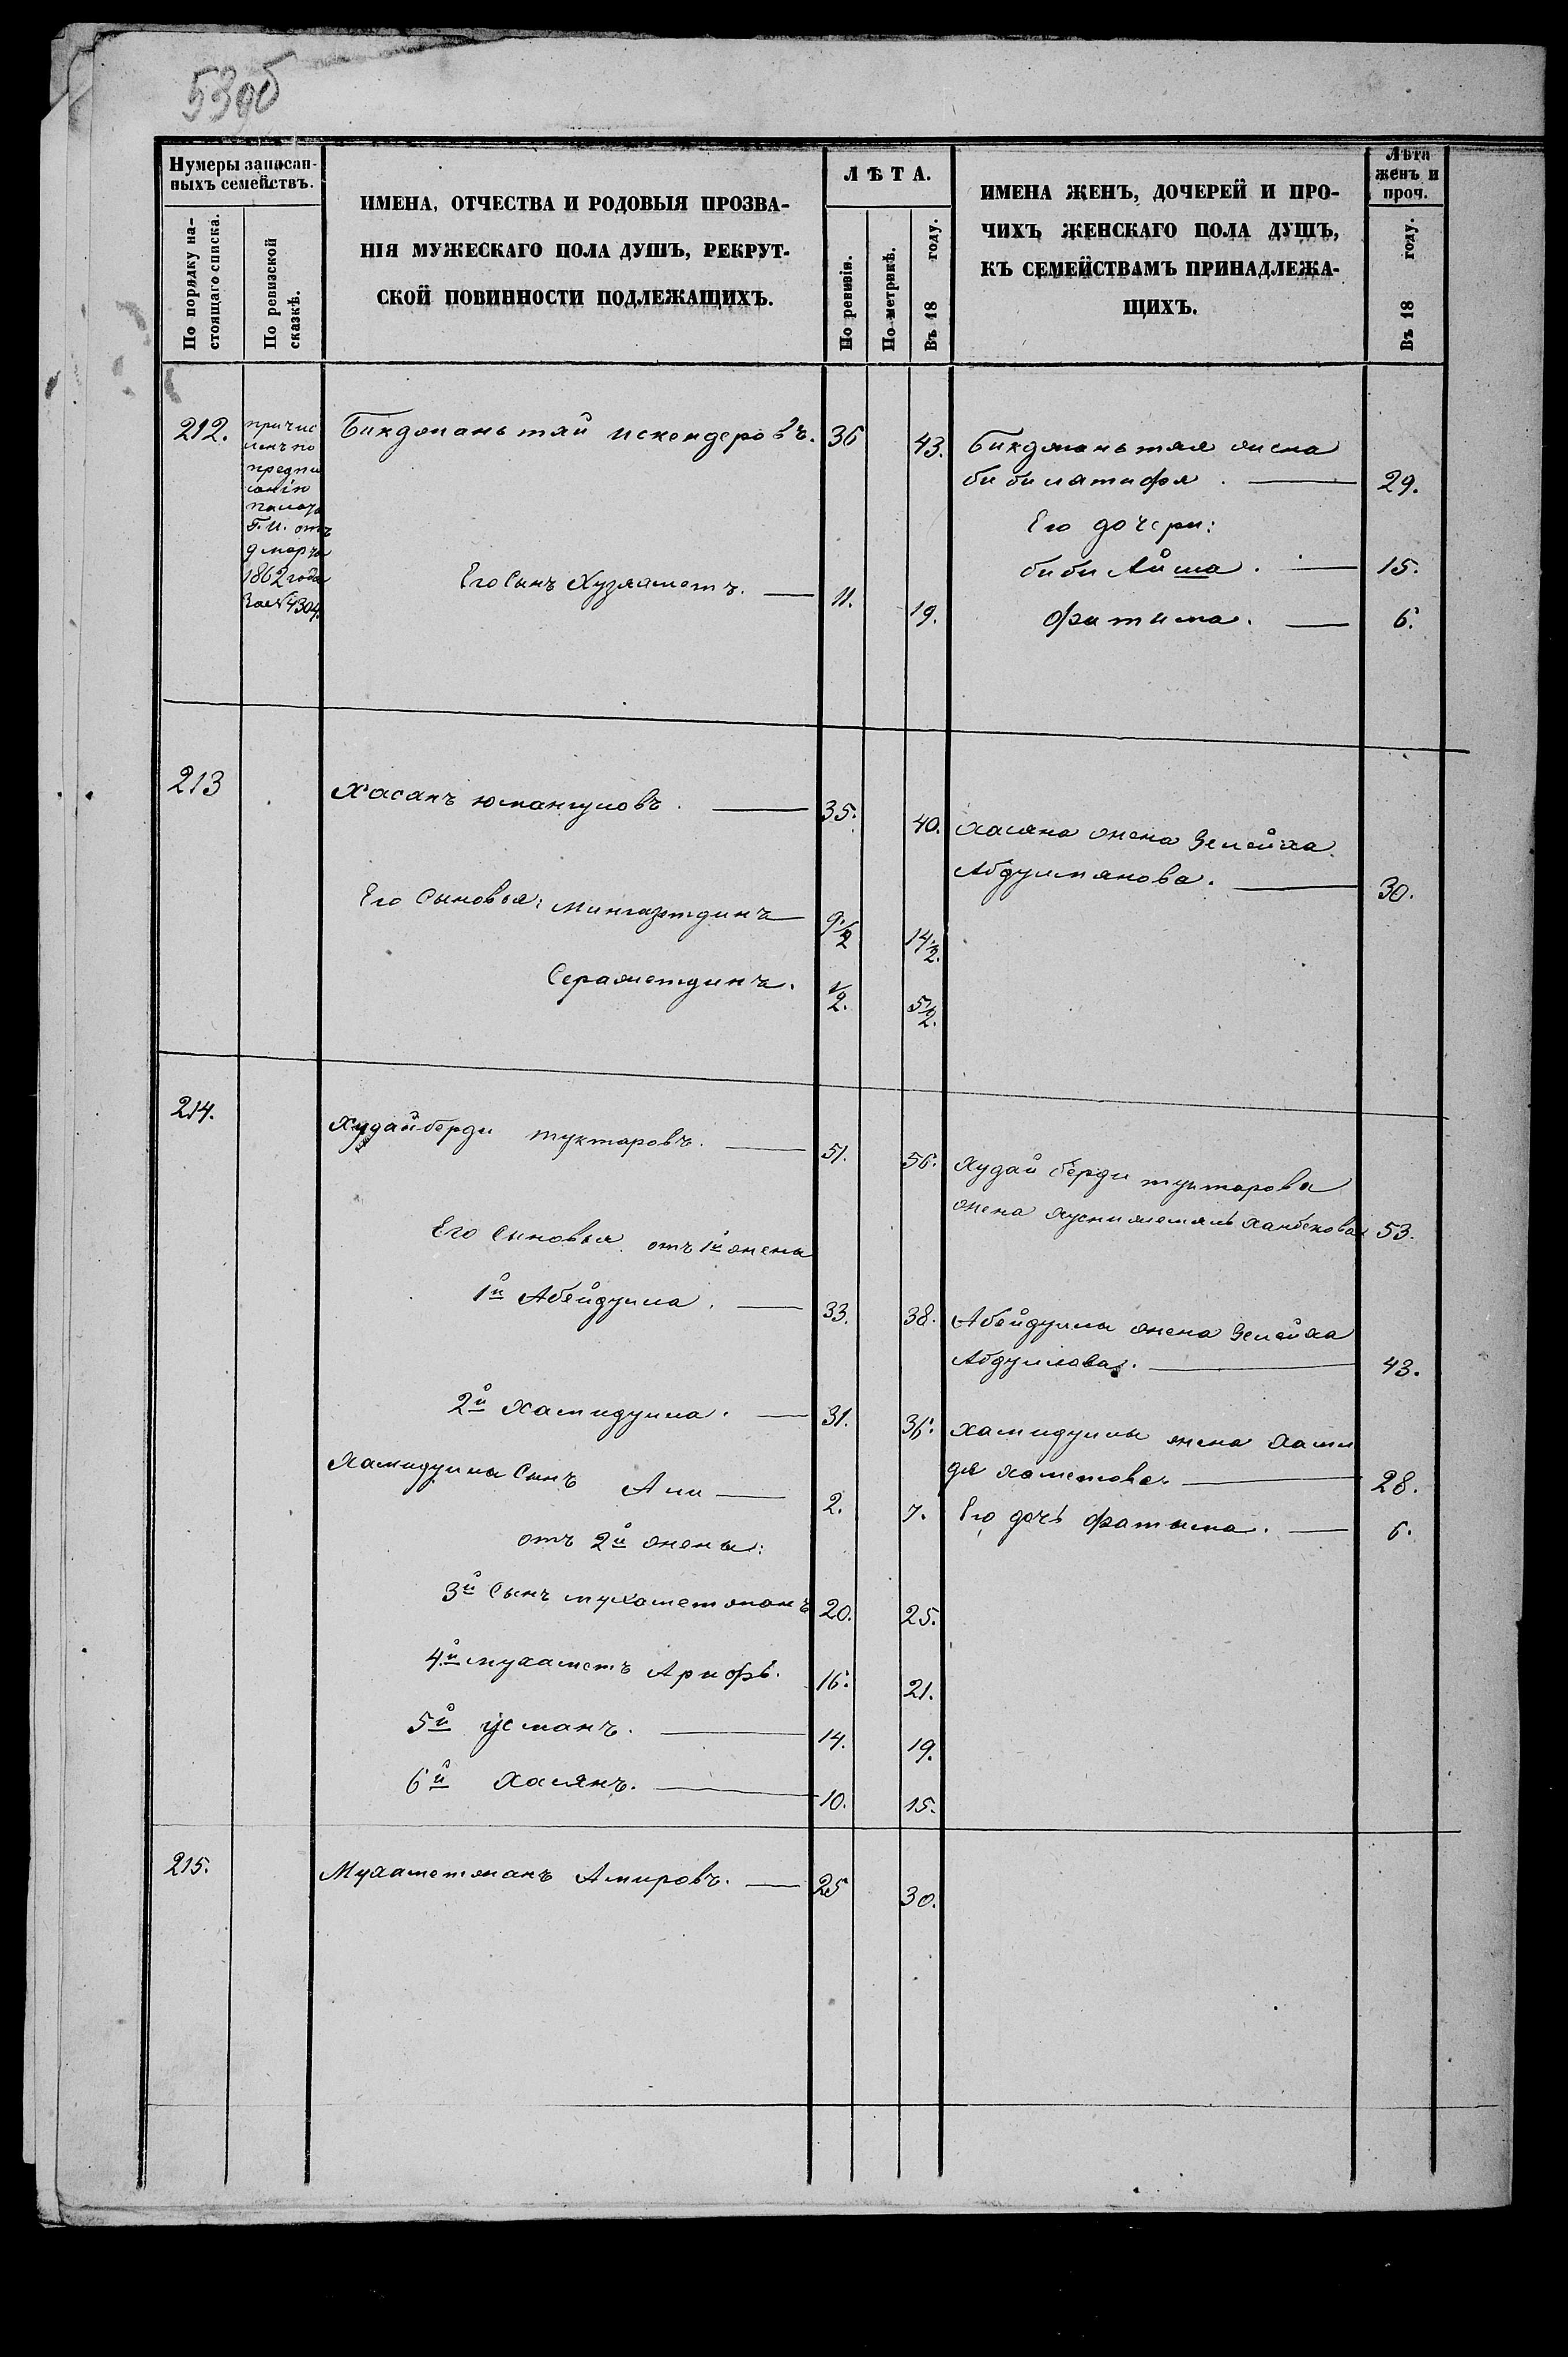 53об
Нумеры записан-
ныхъ семействъ.
По порядку на-
стоящаго списка.
По ревизской
сказкѣ.
ИМЕНА, ОТЧЕСТВА И РОДОВЫЯ ПРОЗВА-
НІЯ МУЖЕСКАГО ПОЛА ДУШЪ, РЕКРУТ-
СКОЙ ПОВИННОСТИ ПОДЛЕЖАЩИХЪ.
ЛѢТА.
По ревизіи.
По метрикѣ.
Въ 18 году.
ИМЕНА ЖЕНЪ, ДОЧЕРЕЙ И ПРО-
ЧИХЪ ЖЕНСКАГО ПОЛА ДУШЪ,
КЪ СЕМЕЙСТВАМЪ ПРИНАДЛЕЖА-
ЩИХЪ.
Лѣта
женъ и
проч.
Въ 18 году.
212.
причис
ленъ по
предпи
санію
палаты
Г. И. отъ
9 марта
1862 года
за № 4304.
Бикджаньтяй Искендеровъ. 36 43.
Бикджаньтяя жена
бибилатифя. 29.
Его дочери:
биби Айша. 15.
Его Сынъ Хузяаметъ. 11. 19.
фатима. 6.
213
Хасанъ Юмангуловъ. 35. 40.
Хасяна жена Зелейха
Абдулмянова. 30.
Его Сыновья: Мингазетдинъ 9 1/2 14 1/2.
Серажетдинъ. 1/2. 5 1/2.
214.
Худайберди туктаровъ. 51. 56.
Худай берди туктарова
жена Хуснижемаль Канбекова 53.
Его Сыновья отъ 1й жены
1й Абейдулла. 33. 38.
Абейдуллы жена Зелейха
Абдуллова. 43.
2й Хамидулла. 31. 36.
Хамидуллы жена Хами
дя Хаметова 28.
Хамидуллы Сынъ Али 2. 7.
Его дочь фатыма. 6.
отъ 2й жены:
3й Сынъ мухаметжанъ 20. 25.
4й мухаметъ Арифъ. 16. 21.
5й Усманъ. 14. 19.
6й Хасянъ. 10. 15.
215.
Мухаметжанъ Амировъ. 25 30.